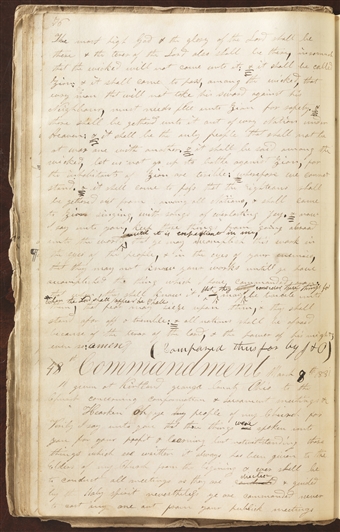 76
the most high God & the glory of the Lord shall be
there & the terror of the Lord also shall be there insomuch
that the wicked will not come unto it & it shall be called
Zion & it shall come to pass among the wicked, that
every man that will not take his sword against his
neighbour, must needs flee unto Zion for safety &
there shall be gathered unto it out of every nation under
heaven & it shall be the only people that shall not be
at war one with another & it shall be said among the
wicked, let us not go up to battle against Zion, for
the inhabitants of Zion are terrible wherefore we cannot
stand & it shall come to pass that the righteous shall
be gathered out from among all nations, & shall come
to Zion singing, with songs of everlasting Joy & now
I say unto you keep these things from going abroad
unto the world until it is expedient in me that ye may accomplish this work in
the eyes of the people, & in the eyes of your enemies,
that they may not know your works until ye have
accomplished the thing which I have commanded you
that when they shall know it that they may consider these things for
when the Lord shall appear he shall be terrible unto
them, that fear may seize upon them & they shall
stand afar off & tremble & all nations shall be afraid
because of the terror of the Lord, & the power of his might
even so amen (Compared thus far by J & O)
48 Commandment March 8th 1831
given at Kirtland Geauga County Ohio to the
Church concerning confirmation & sacrament meetings &c
Hearken Oh ye people of my Church for
Verily I say unto you that these things were spoken unto
you for your profit & learning but notwithstanding these
things which are written it always has been given to the
Elders of my Church from the begining & ever shall be
to conduct all meetings as they are directed & guided
by the Holy spirit nevertheless ye are commanded never
to cast any one out from your publick meetings